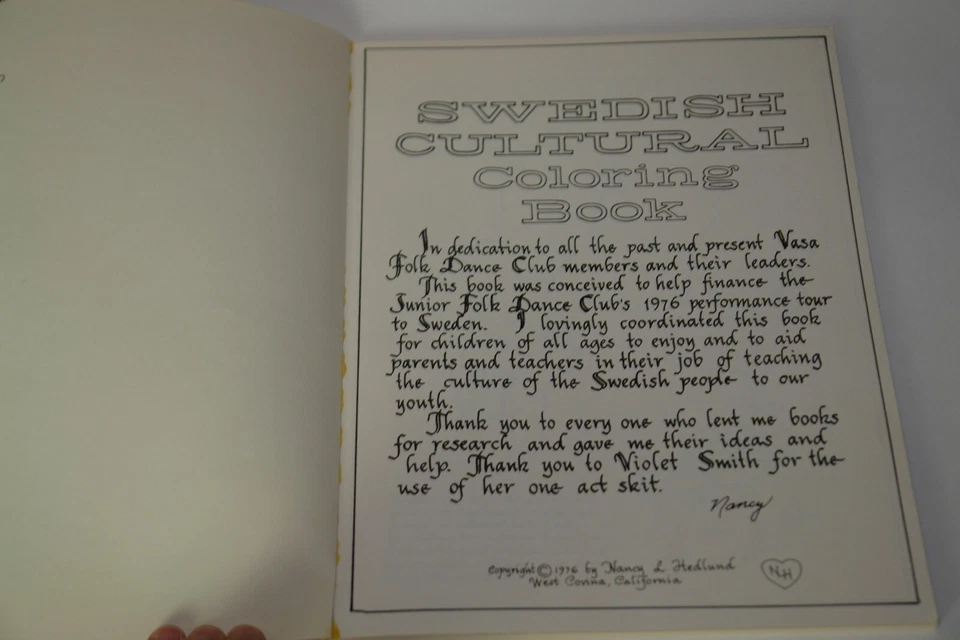 SWEDISH
CULTURAL
Coloring
Book
In dedication to all the past and present Vasa
Folk Dance Club members and their leaders.
This book was conceived to help finance the
Junior Folk Dance Club's 1976 performance tour
to Sweden. I lovingly coordinated this book
for children of all ages to enjoy and to aid
parents and teachers in their job of teaching
the culture of the Swedish people to our
youth.
Thank you to every one who lent me books
for research and gave me their ideas and
help. Thank you to Violet Smith for the
use of her one act skit.
Nancy
Copyright © 1976 by Nancy L Hedlund
West Covina, California
NH